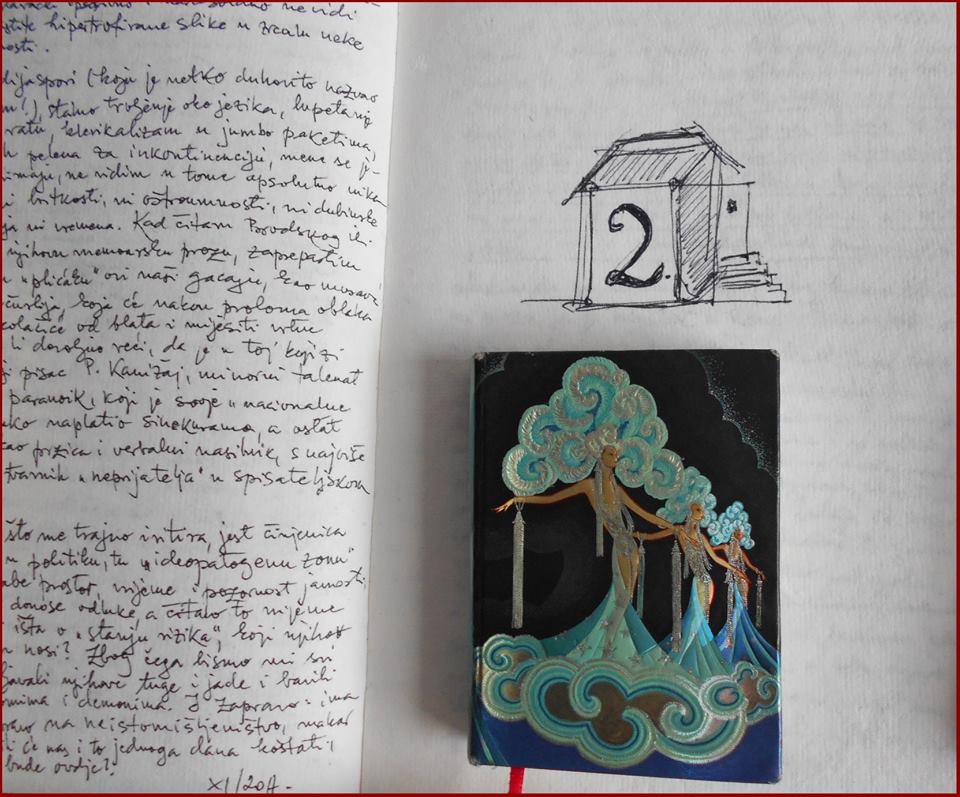 hipertrofirane slike u zrcalu neke
nosti.
dijaspori (koju je netko duhovito nazvao
m!), stalno trvljenje oko jezika,
ratu, klerikalizam u jumbo paketima,
h pelena za inkontinenciju, mene se
imaju, ne vidim u tome apsolutno nika
i britkosti, ni oštroumnosti, ni dubinske
ja ni vremena. Kad čitam Brodskog ili
njihovu memoarsku prozu, zaprepastim
u "plićaku" ovi naši gacaju, kao
koje će nakon proloma oblaka
kolačiće od blata i mijesiti
li dovoljno reći, da je u toj knjizi
ji pisac P. Kanižaj, minorni talenat
paranoik, koji je svoje "nacionalne
naplatio sinekurama, a ostat
tao pržica i verbalni nasilnik, s najviše
stvarnih "neprijatelja" u spisateljskom
što me trajno iritira, jest činjenica
u politiku, tu "ideopatogenu zonu"
prostor, vrijeme i pozornost javnosti,
donose odluke, a čitavo to vrijeme
išta o "stanju rizika", koji njihov
nosi? Zbog čega bismo mi svi
njihove tuge i jade i bavili
i demonima. I zapravo: ima
pravo na neistomišljeništvo, makar
li će nas i to jednoga dana koštati i
bude ovdje?
XI/201.
2.